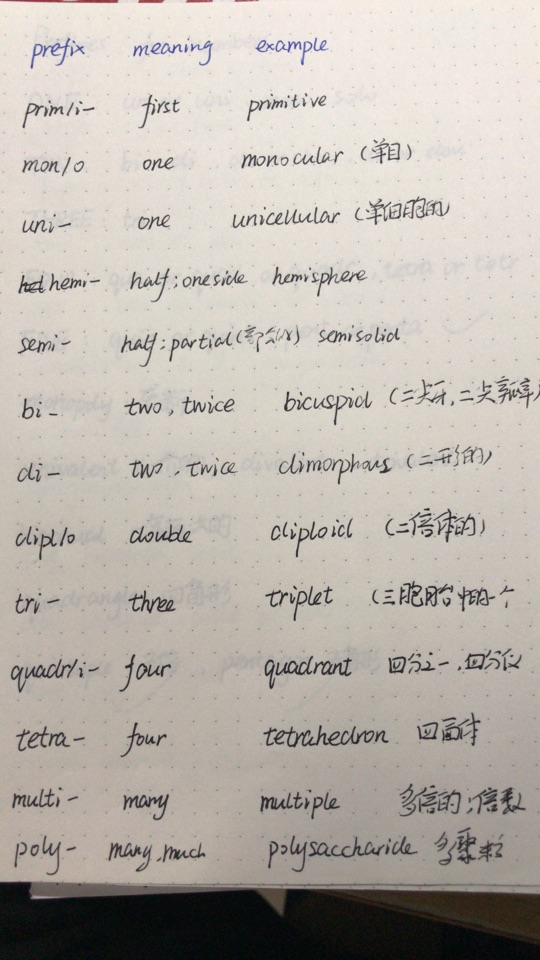 prefix meaning example
prim/i- first primitive
mon/o one monocular (单目)
uni- one unicellular (单细胞的)
hemi- half; one side hemisphere
semi- half; partial (部分的) semisolid
bi- two, twice bicuspid (二尖牙, 二尖瓣
di- two, twice dimorphous (二形的)
dipl/o double diploid (二倍体的)
tri- three triplet (三胞胎中的一个
quadr/i- four quadrant 四分之一, 四分仪
tetra- four tetrahedron 四面体
multi- many multiple 多倍的; 倍数
poly- many, much polysaccharide 多聚糖